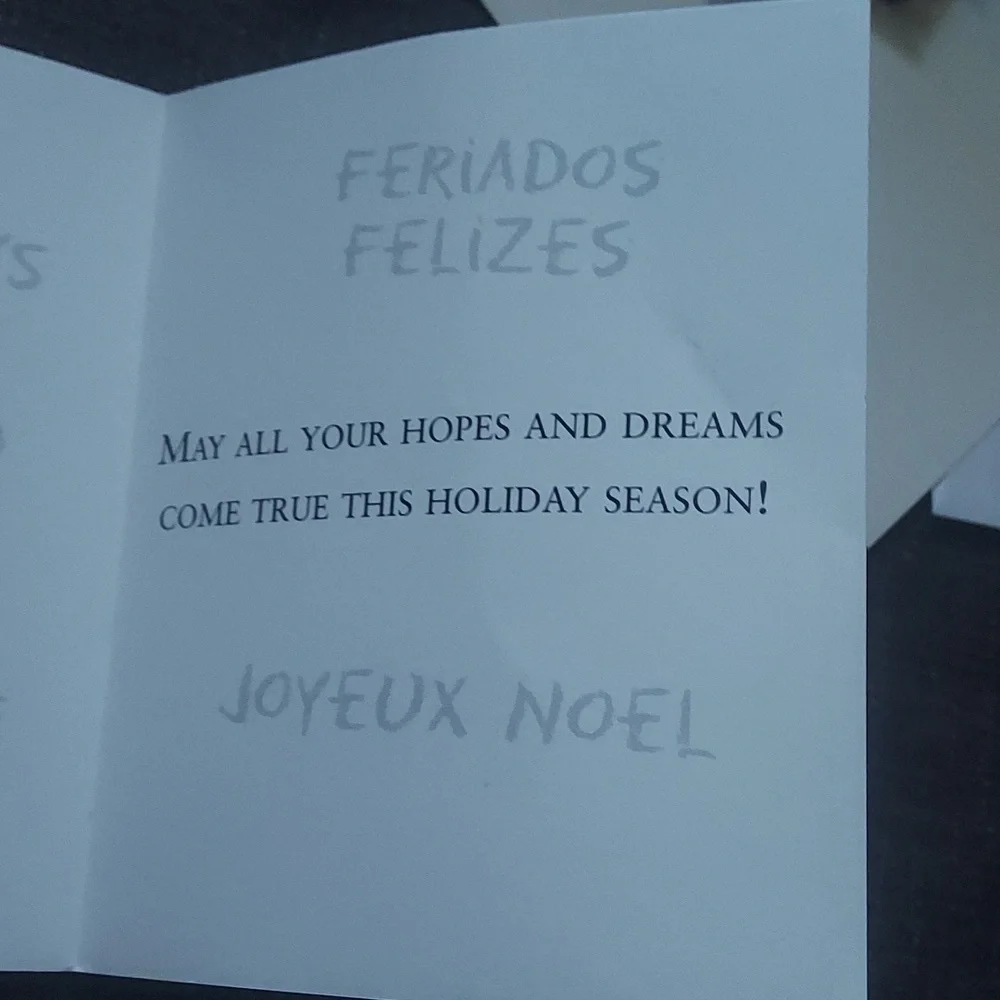 FERiADOS
FELiZES
MAY ALL YOUR HOPES AND DREAMS
COME TRUE THIS HOLIDAY SEASON!
JOYEUX NOEL